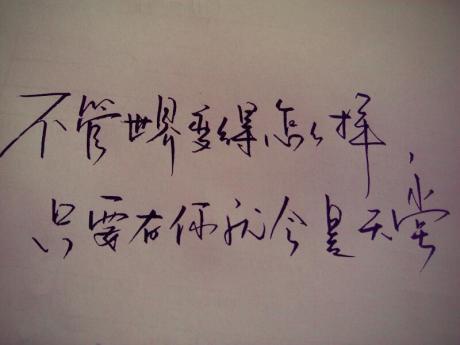 不管世界变得怎么样，
只要有你就会是天堂